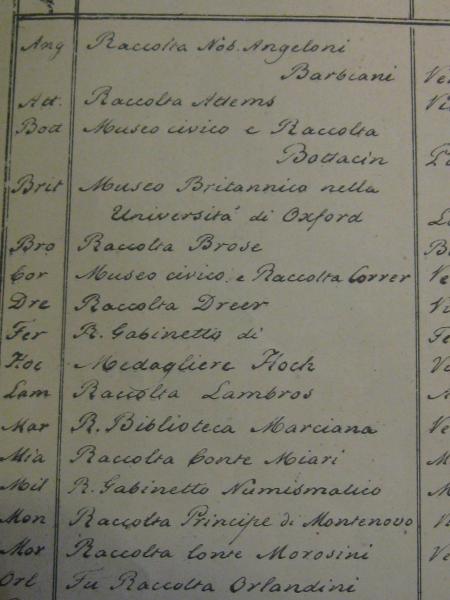 Ang Raccolta Nob. Angeloni
Barbiani Ve
Att. Raccolta Attems Vi
Bott Museo civico e Raccolta
Bottacin
Brit Museo Britannico nella
Università di Oxford
Bro Raccolta Brose
Cor Museo civico e Raccolta Correr Ve
Dre Raccolta Dreer Vi
Fer R. Gabinetto di Fe
Hoc Medagliere Hoch
Lam Raccolta Lambros
Mar R. Biblioteca Marciana Ve
Mia Raccolta Conte Miari M
Mil R. Gabinetto Numismatico M
Mon Raccolta Principe di Montenovo
Mor Raccolta Conte Morosini Ve
Orl Fu Raccolta Orlandini